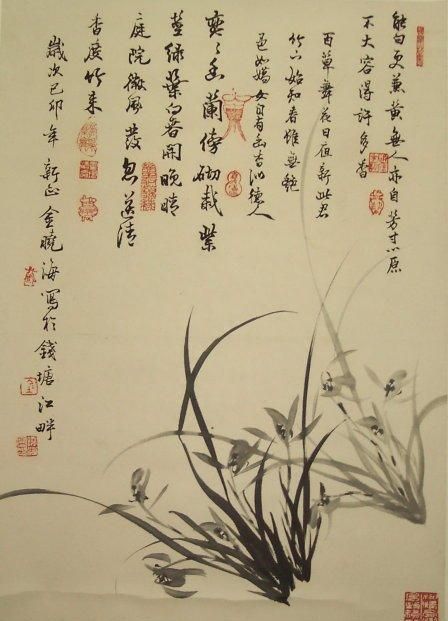 能白更兼黄無人亦自芳寸心原
不大容得許多香
百草花日夜新此君
竹下始知春雖無艷
色如嬌女自有幽香似德人
奕々幽蘭傍砌栽紫
莖綠葉向春開晚晴
庭院微風發忽送清
香度竹来
歲次己卯年新正金曉海寫於錢塘江畔